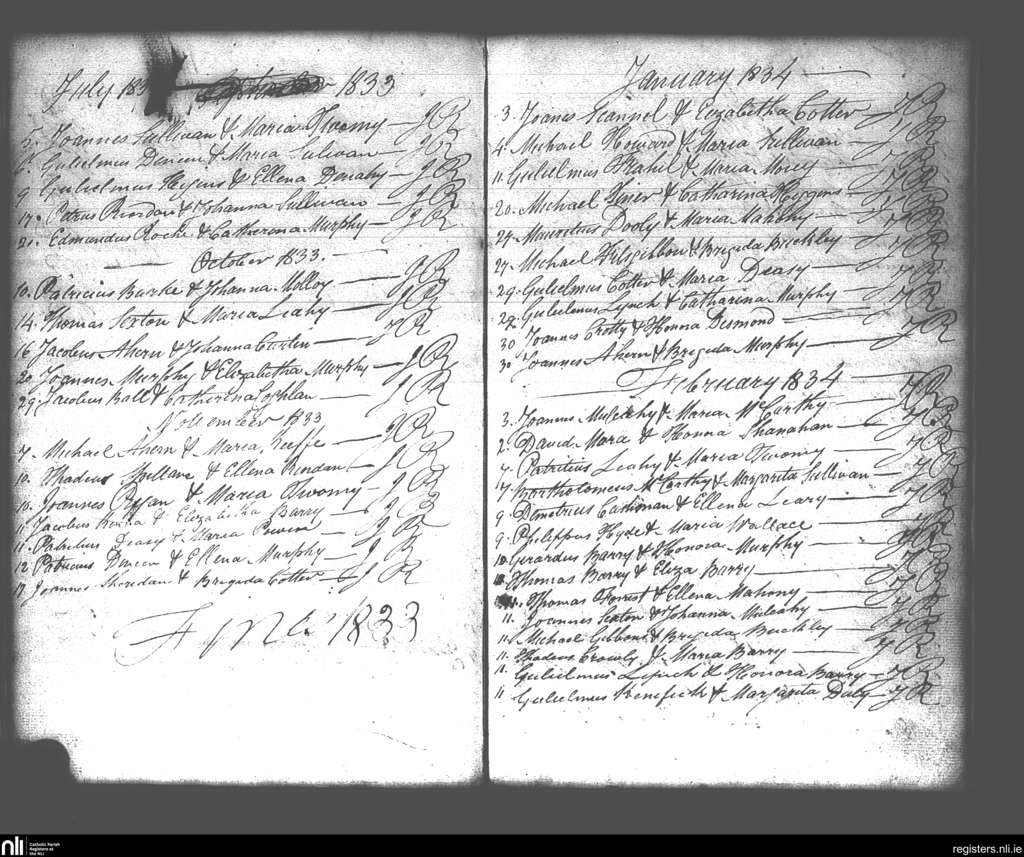 July 183 1833
5. Joannes Sullivan & Maria Twomy — JR
6. Gulielmus Dineen & Maria Sulivan — JR
9 Gulielmus Hegens & Ellena Donahy — JR
14. Petrus Riordan & Johanna Sullivan — JR
21. Edmundus Roche & Catherina Murphy — JR
October 1833.
10. Patricius Burke & Johanna Molloy — JR
14. Thomas Sexton & Maria Leahy — JR
16 Jacobus Ahern & Johanna — JR
20 Joannes Murphy & Elizabetha Murphy — JR
29. Jacobus Ball & Catherina Coghlan — JR
November 1833
7. Michael Ahern & Maria Keeffe — JR
10. Thadeus Spellane & Ellena Riordan — JR
10. Joannes Ryan & Maria Twomy — JR
Jacobus & Elizabetha Barry — JR
11. Patritius Deasy & Maria Power — JR
12 Patricius Dineen & Ellena Murphy — JR
17 Joannes Sheridan & Brigida Cotter — JR
Finis 1833
January 1834
3. Joanes Scannel & Elizabetha Cotter — JR
4. Michael Howard & Maria Sullivan — JR
11. Gulielmus Frahil & Maria — JR
20. Michael & Catharina Higgens — JR
24. Mauritius Dooly & Maria Mahony — JR
27. Michael Fitzgibbon & Brigida Buckley — JR
29. Gulielmus Cotter & Maria Deasy — JR
29. Gulielmus Lynch & Catharina Murphy — JR
30 Joannes Crotty & Honna Desmond — JR
30 Joannes Ahern & Brigida Murphy — JR
February 1834 — JR
3. Joannes Mulcahy & Maria McCarthy — JR
2. David Mora & Honna Shanahan — JR
4. Patritius Leahy & Maria Twomy — JR
7 Bartholomeus McCarthy & Margarita Sullivan
9. Demetrius & Ellena Leary — JR
9. Philippus Hyde & Maria Wallace — JR
10. Girardus Barry & Honora Murphy — JR
Thomas Barry & Eliza Barry — JR
11. Thomas Forrest & Ellena Mahony — JR
11. Joannes Sexton & Johanna Mulcahy — JR
11. Michael Gibbons & Brigida Buckley — JR
11. Thadeus Crowly & Maria Barry — JR
11. Gulielmus Lynch & Honora Barry — JR
11 Gulielmus Benefieth & Margarita Daly — JR
nli
Catholic Parish
Registers at
the NLI
registers.nli.ie